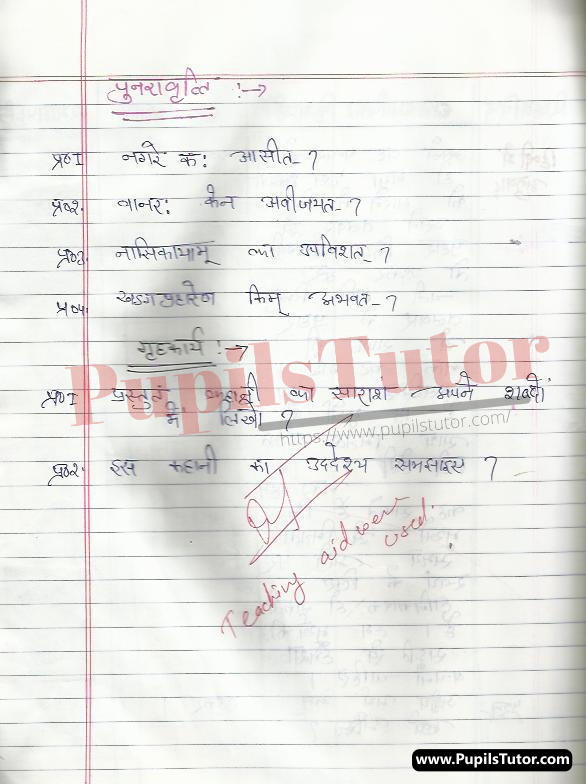 पुनरावृत्ति :→
प्र०1 नगरे कः आसीत् ?
प्र०2. वानरः केन अवीजयत् ?
प्र०3. नासिकायाम् का उपविशत् ?
प्र०4. खडगप्रहारेण किम् अभवत् ?
गृहकार्य :→
PupilsTutor
प्र०1 प्रस्तुत कहानी का सारांश अपने शब्दों
में लिखो ?
https://www.pupilstutor.com/
प्र०2. इस कहानी का उद्देश्य समझाइए ?
Teaching aid were
used.
www.PupilsTutor.com